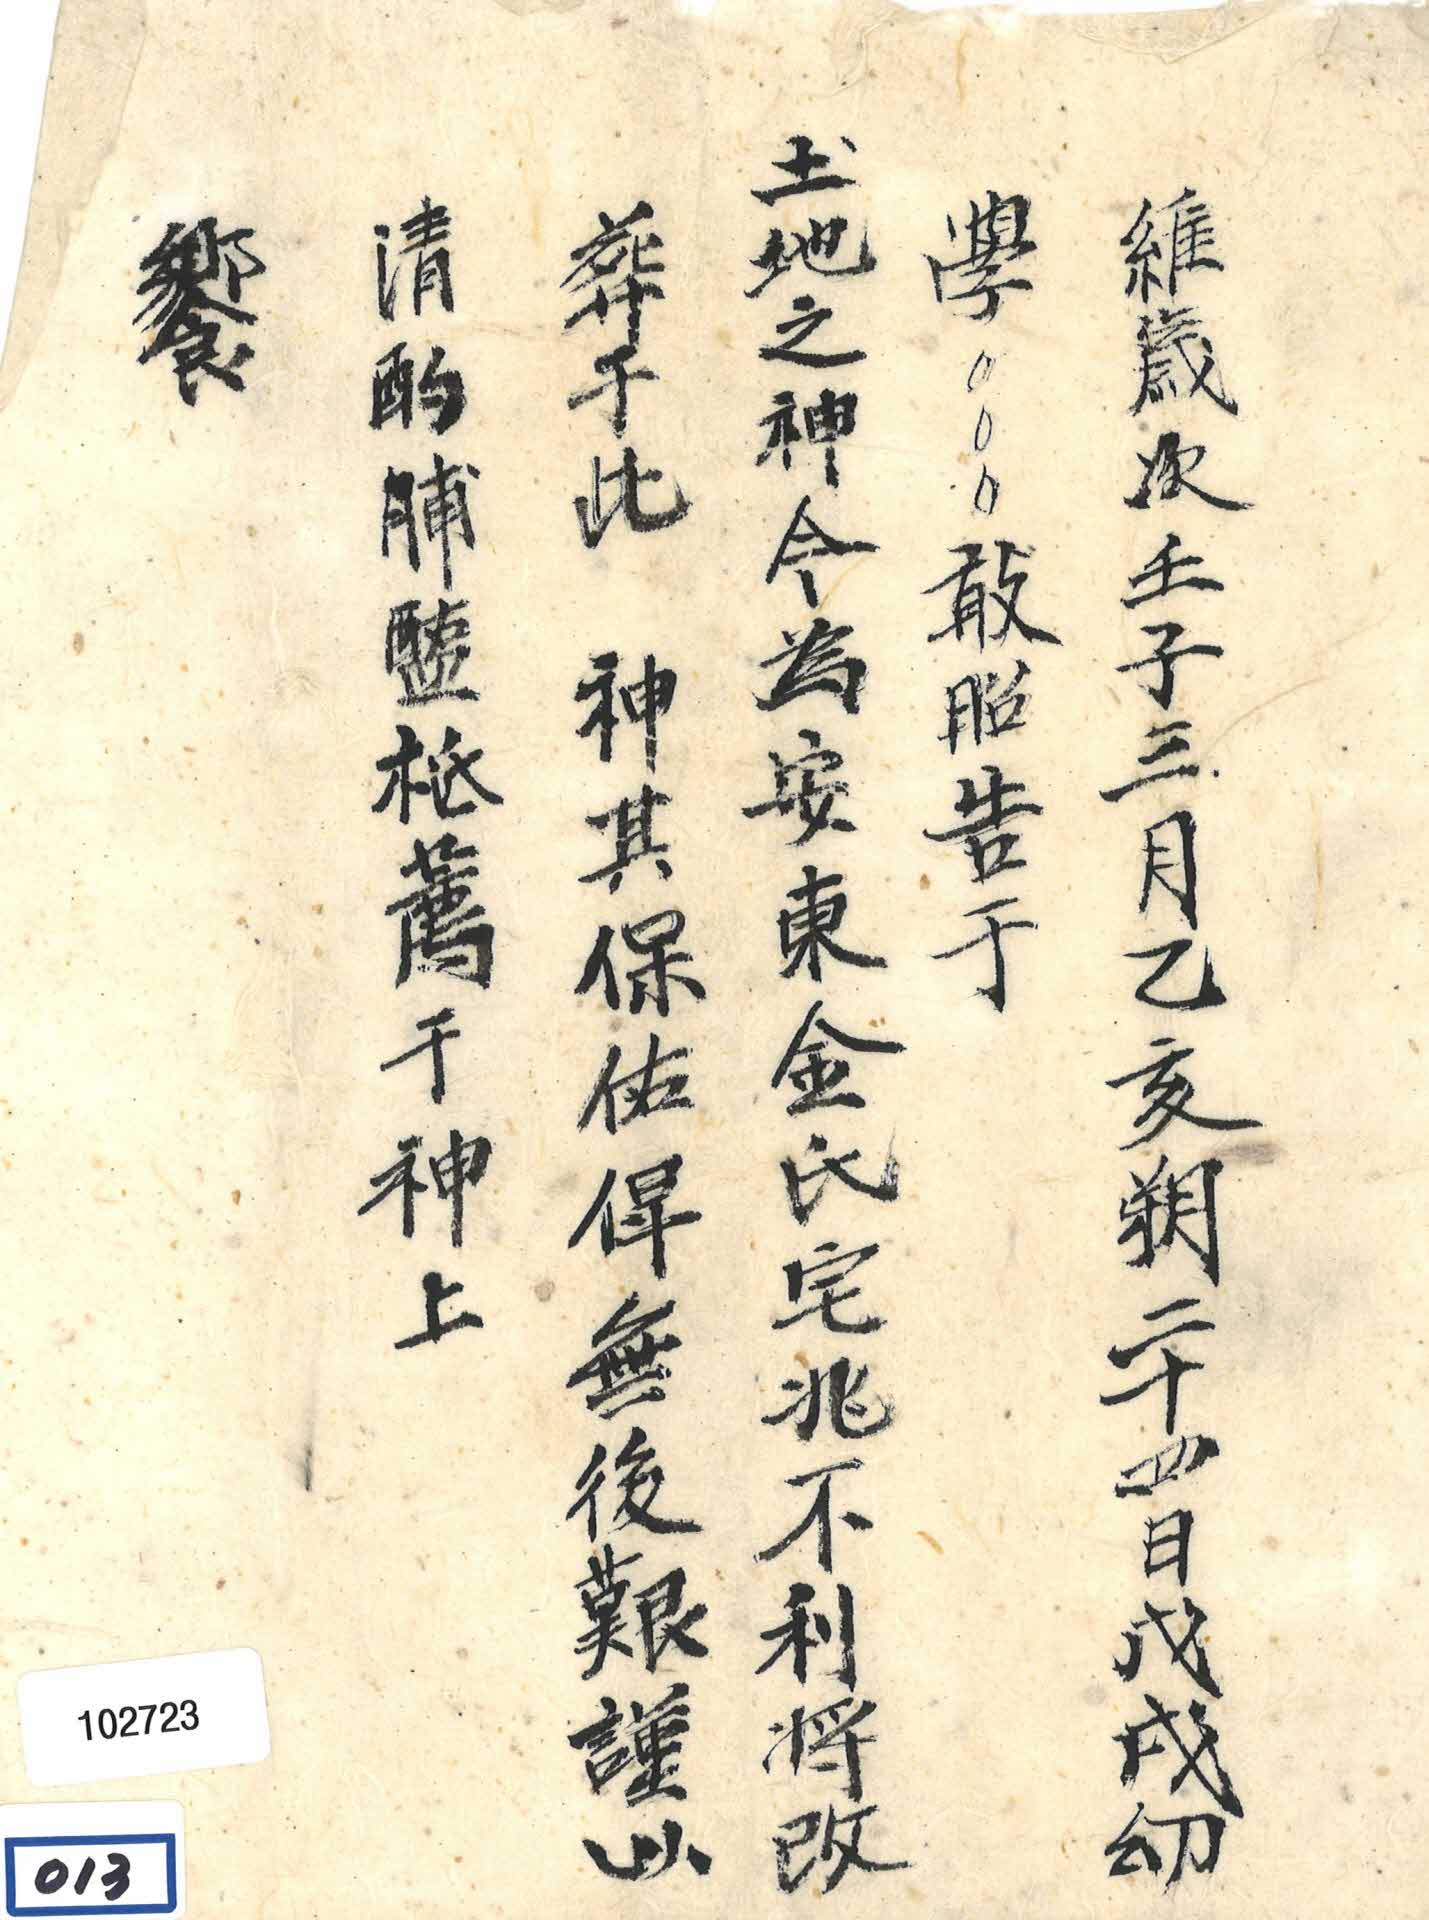 維歲次壬子三月乙亥朔二十四日戊戌幼
學○○○敢昭告于
土地之神今為安東金氏宅兆不利將改
葬于此 神其保佑俾無後艱謹以
清酌脯醢祗薦于神上
饗
102723
013